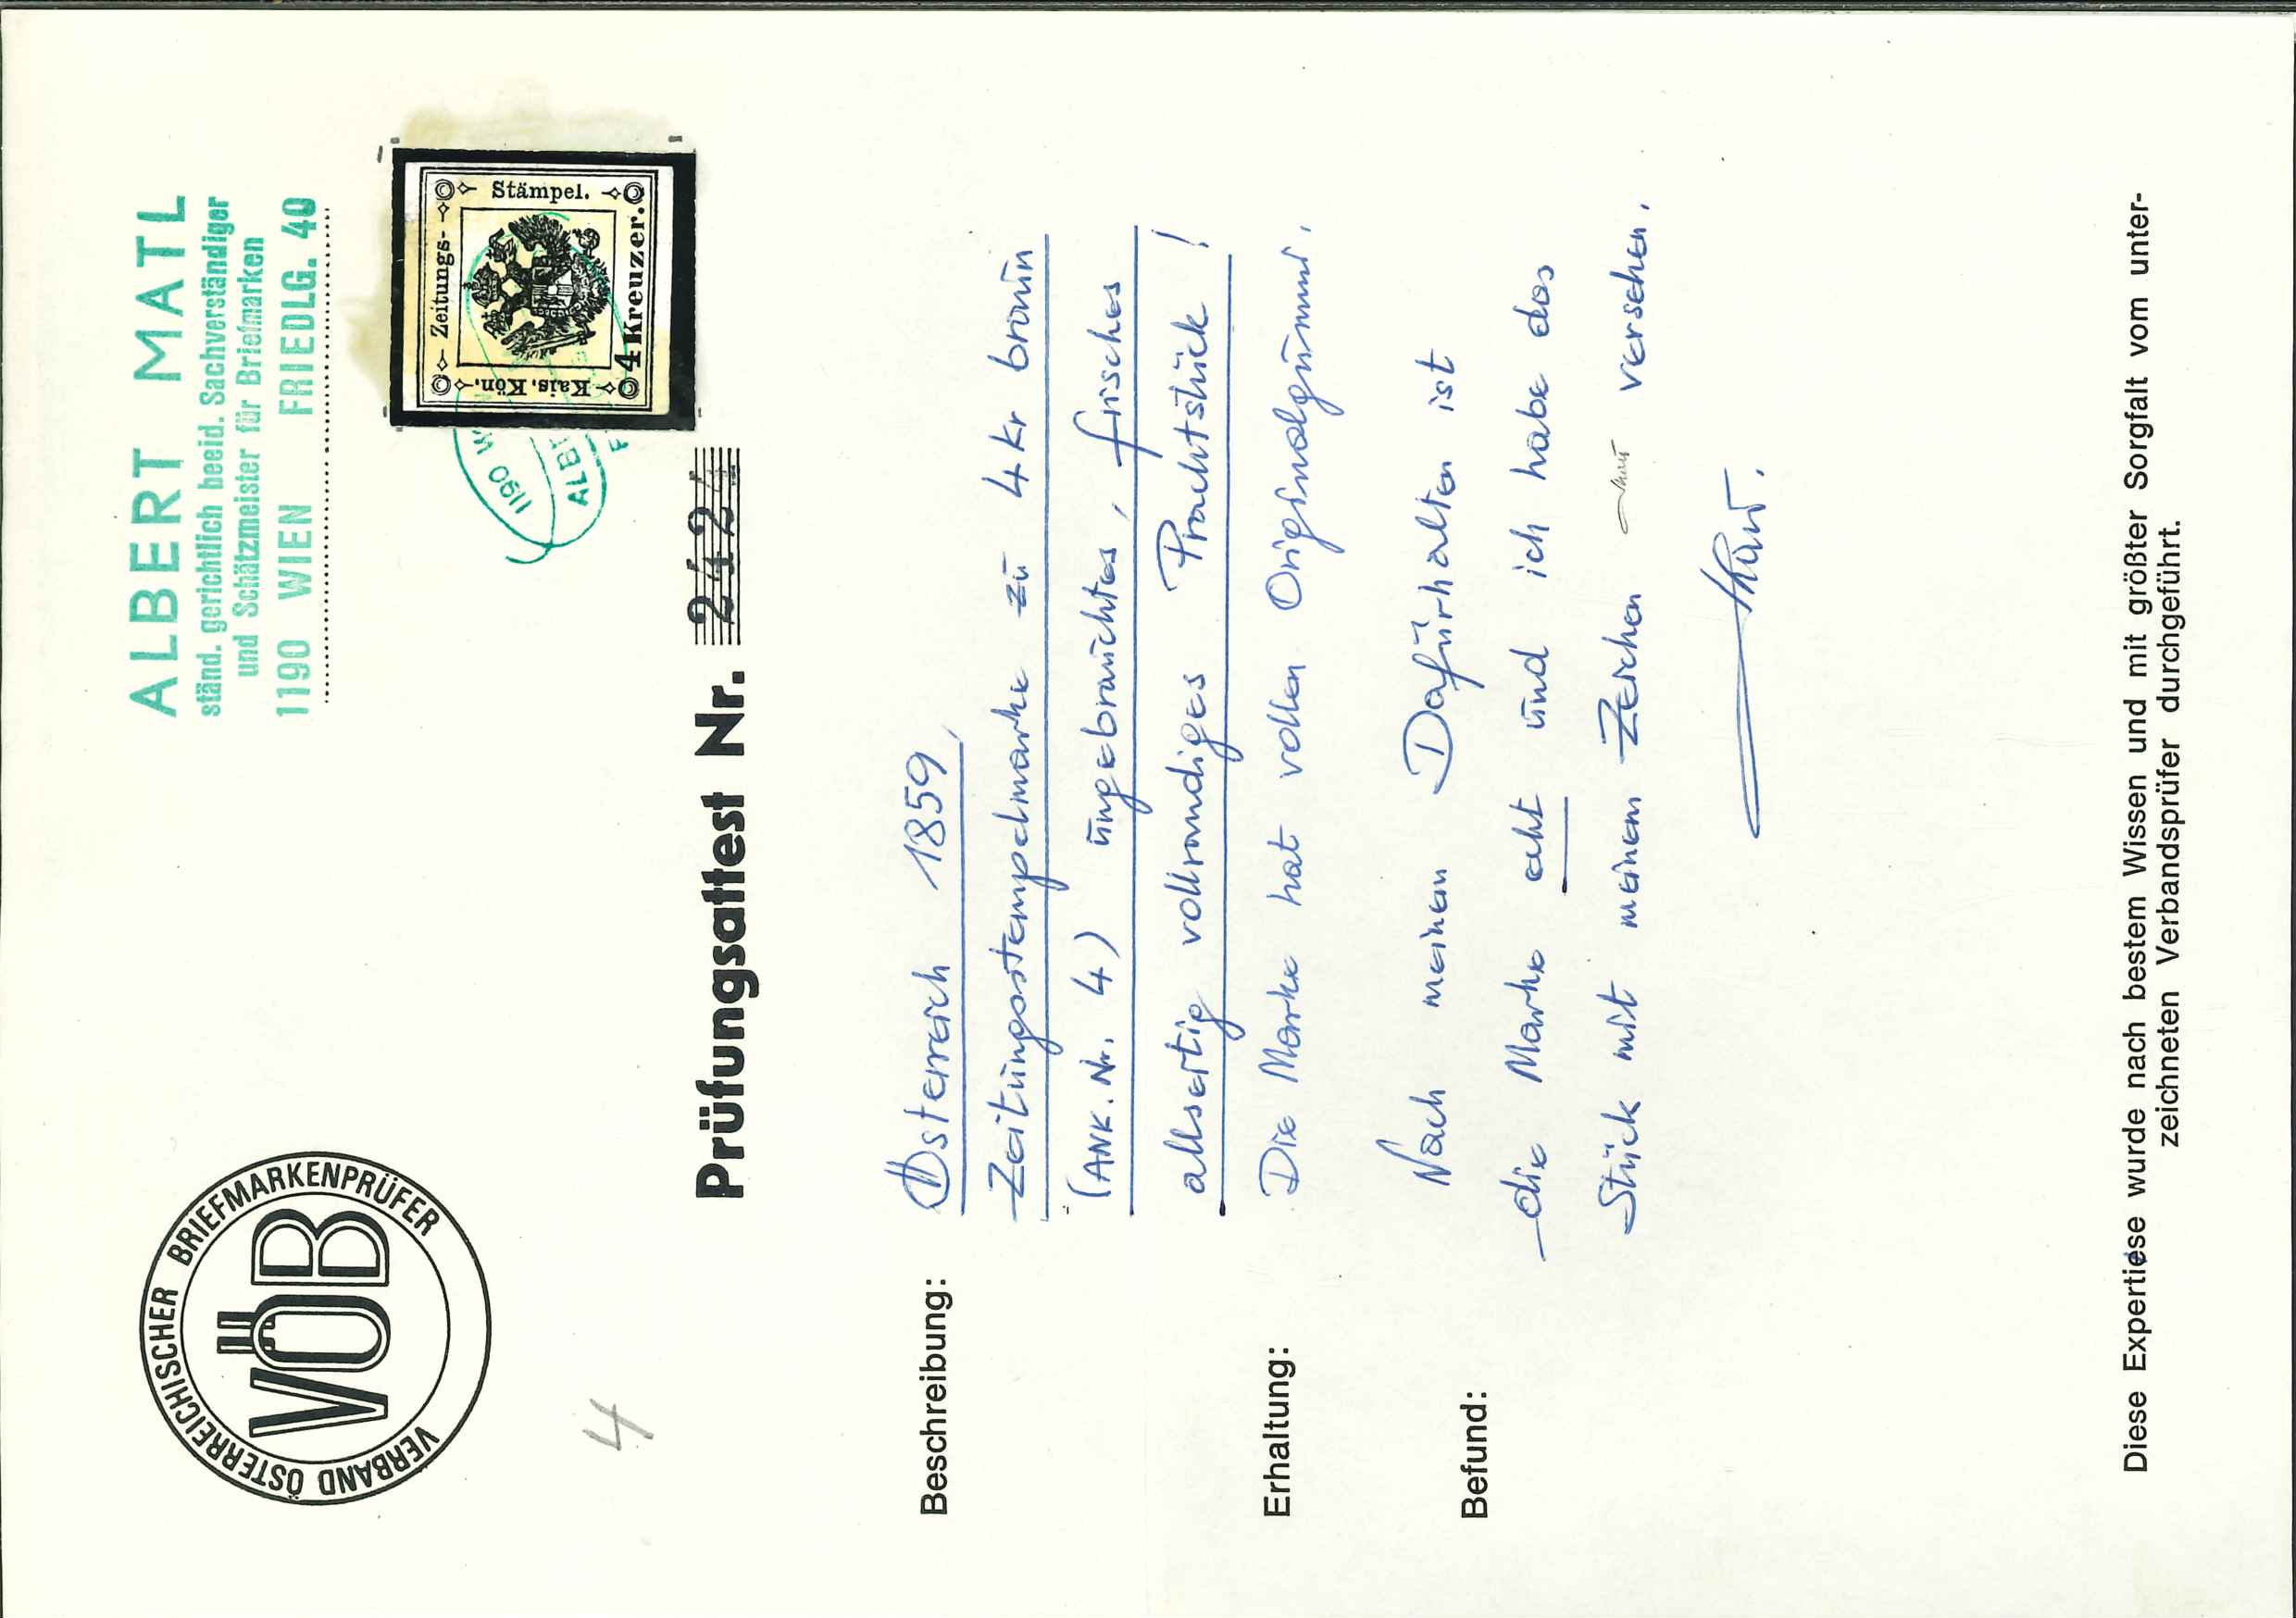 VERBAND ÖSTERREICHISCHER BRIEFMARKENPRÜFER
VÖB
ALBERT MATL
ständ. gerichtlich beeid. Sachverständiger
und Schätzmeister für Briefmarken
1190 WIEN FRIEDLG. 40
Zeitungs-
Stämpel.
Kais. Kön.
4 Kreuzer.
1190 W
ALB
4
Prüfungsattest Nr. 2424
Beschreibung: Österreich 1859,
Zeitungsstempelmarke zu 4 Kr braun
(ANK. Nr. 4) ungebrauchtes, frisches
allseitig vollrandiges Prachtstück!
Erhaltung: Die Marke hat vollen Originalgummi.
Befund: Nach meinen Dafürhalten ist
die Marke echt und ich habe das
Stück mit meinem Zeichen versehen.
Diese Expertiese wurde nach bestem Wissen und mit größter Sorgfalt vom unter-
zeichneten Verbandsprüfer durchgeführt.